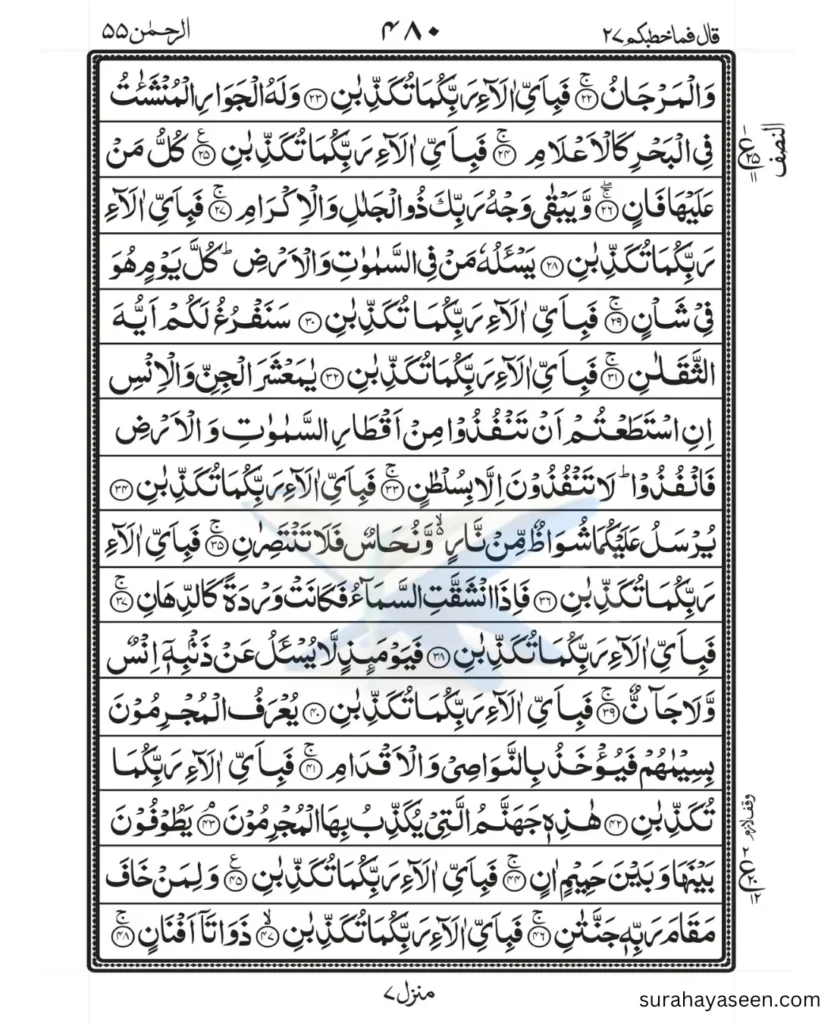 قال فما خطبكم ٢٧ ۴۸۰ الرحمٰن ۵۵
وَالْمَرْجَانُ ۚ﴿۲۲﴾ فَبِاَىِّ اٰلَآءِ رَبِّكُمَا تُكَذِّبٰنِ ﴿۲۳﴾ وَلَهُ الْجَوَارِ الْمُنْشَـٰٔتُ
فِى الْبَحْرِ كَالْاَعْلَامِ ۚ﴿۲۴﴾ فَبِاَىِّ اٰلَآءِ رَبِّكُمَا تُكَذِّبٰنِ ﴿۲۵﴾ؑ كُلُّ مَنْ
عَلَيْهَا فَانٍ ۚۖ﴿۲۶﴾ وَّيَبْقٰى وَجْهُ رَبِّكَ ذُو الْجَلٰلِ وَالْاِكْرَامِ ۚ﴿۲۷﴾ فَبِاَىِّ اٰلَآءِ
رَبِّكُمَا تُكَذِّبٰنِ ﴿۲۸﴾ يَسْـَٔلُهٗ مَنْ فِى السَّمٰوٰتِ وَالْاَرْضِ ؕ كُلَّ يَوْمٍ هُوَ
فِىْ شَاْنٍ ۚ﴿۲۹﴾ فَبِاَىِّ اٰلَآءِ رَبِّكُمَا تُكَذِّبٰنِ ﴿۳۰﴾ سَنَفْرُغُ لَكُمْ اَيُّهَ
الثَّقَلٰنِ ۚ﴿۳۱﴾ فَبِاَىِّ اٰلَآءِ رَبِّكُمَا تُكَذِّبٰنِ ﴿۳۲﴾ يٰمَعْشَرَ الْجِنِّ وَالْاِنْسِ
اِنِ اسْتَطَعْتُمْ اَنْ تَنْفُذُوْا مِنْ اَقْطَارِ السَّمٰوٰتِ وَالْاَرْضِ
فَانْفُذُوْا ؕ لَا تَنْفُذُوْنَ اِلَّا بِسُلْطٰنٍ ۚ﴿۳۳﴾ فَبِاَىِّ اٰلَآءِ رَبِّكُمَا تُكَذِّبٰنِ ﴿۳۴﴾
يُرْسَلُ عَلَيْكُمَا شُوَاظٌ مِّنْ نَّارٍ ۙ وَّنُحَاسٌ فَلَا تَنْتَصِرٰنِ ۚ﴿۳۵﴾ فَبِاَىِّ اٰلَآءِ
رَبِّكُمَا تُكَذِّبٰنِ ﴿۳۶﴾ فَاِذَا انْشَقَّتِ السَّمَآءُ فَكَانَتْ وَرْدَةً كَالدِّهَانِ ۚ﴿۳۷﴾
فَبِاَىِّ اٰلَآءِ رَبِّكُمَا تُكَذِّبٰنِ ﴿۳۸﴾ فَيَوْمَئِذٍ لَّا يُسْـَٔلُ عَنْ ذَنْۢبِهٖۤ اِنْسٌ
وَّلَا جَآنٌّ ۚ﴿۳۹﴾ فَبِاَىِّ اٰلَآءِ رَبِّكُمَا تُكَذِّبٰنِ ﴿۴۰﴾ يُعْرَفُ الْمُجْرِمُوْنَ
بِسِيْمٰهُمْ فَيُؤْخَذُ بِالنَّوَاصِىْ وَالْاَقْدَامِ ۚ﴿۴۱﴾ فَبِاَىِّ اٰلَآءِ رَبِّكُمَا
تُكَذِّبٰنِ ﴿۴۲﴾ هٰذِهٖ جَهَنَّمُ الَّتِىْ يُكَذِّبُ بِهَا الْمُجْرِمُوْنَ ۘ﴿۴۳﴾ يَطُوْفُوْنَ
بَيْنَهَا وَبَيْنَ حَمِيْمٍ اٰنٍ ۚ﴿۴۴﴾ فَبِاَىِّ اٰلَآءِ رَبِّكُمَا تُكَذِّبٰنِ ﴿۴۵﴾ؑ وَلِمَنْ خَافَ
مَقَامَ رَبِّهٖ جَنَّتٰنِ ۚ﴿۴۶﴾ فَبِاَىِّ اٰلَآءِ رَبِّكُمَا تُكَذِّبٰنِ ۙ﴿۴۷﴾ ذَوَاتَاۤ اَفْنَانٍ ۚ﴿۴۸﴾
النصف
وقف لازم
منزل ٧
surahayaseen.com